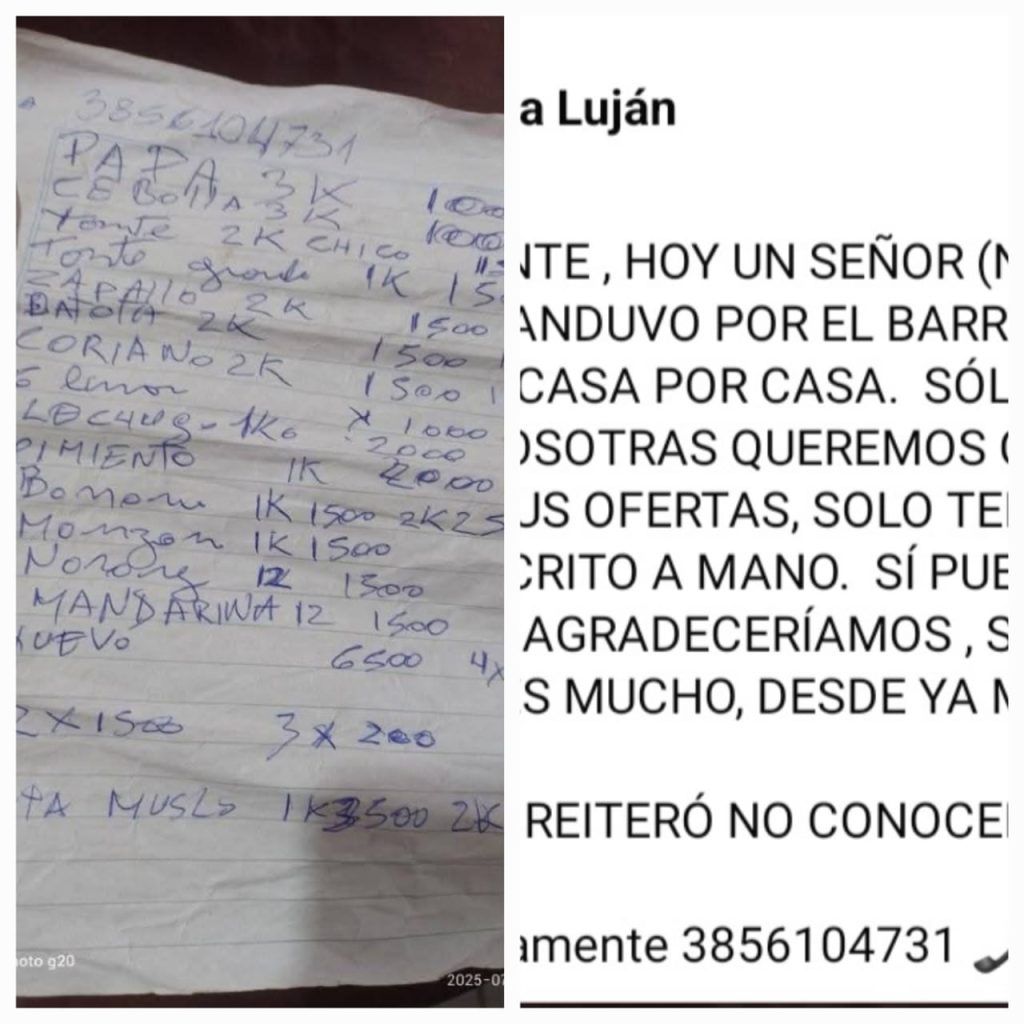 3856104731
PAPA 3K 1000
CEBOLLA 3K 1000
Tomte 2K CHICO
Tomte grande 1K 15
ZAPALLO 2K 1500
BATATA 2K 1500
CORIANO 2K 1500
6 limon x 1000
LECHUG- 1K 2000
PIMIENTO 1K 2000
Banana 1K 1500 2K 25
Manzan 1K 1500
Naranj 12 1500
MANDARINA 12 1500
HUEVO 6500 4x
2 X 1500 3 X 200
TA MUSLO 1K 3500 2K
oto g20
2025-07
a Luján
NTE , HOY UN SEÑOR (N
ANDUVO POR EL BARR
CASA POR CASA. SÓL
OSOTRAS QUEREMOS
US OFERTAS, SOLO TE
CRITO A MANO. SÍ PUE
AGRADECERÍAMOS , S
S MUCHO, DESDE YA M
REITERÓ NO CONOCE
amente 3856104731